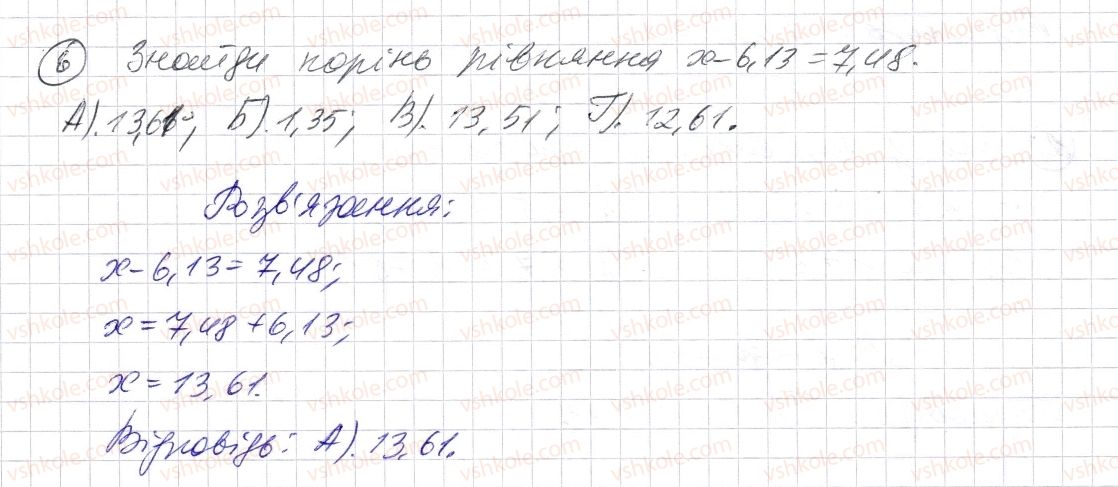 6 Знайди корінь рівняння x - 6,13 = 7,48.
А). 13,61; Б). 1,35; В). 13,51; Г). 12,61.
Розв'язання:
x - 6,13 = 7,48;
x = 7,48 + 6,13;
x = 13,61.
Відповідь: А). 13,61.